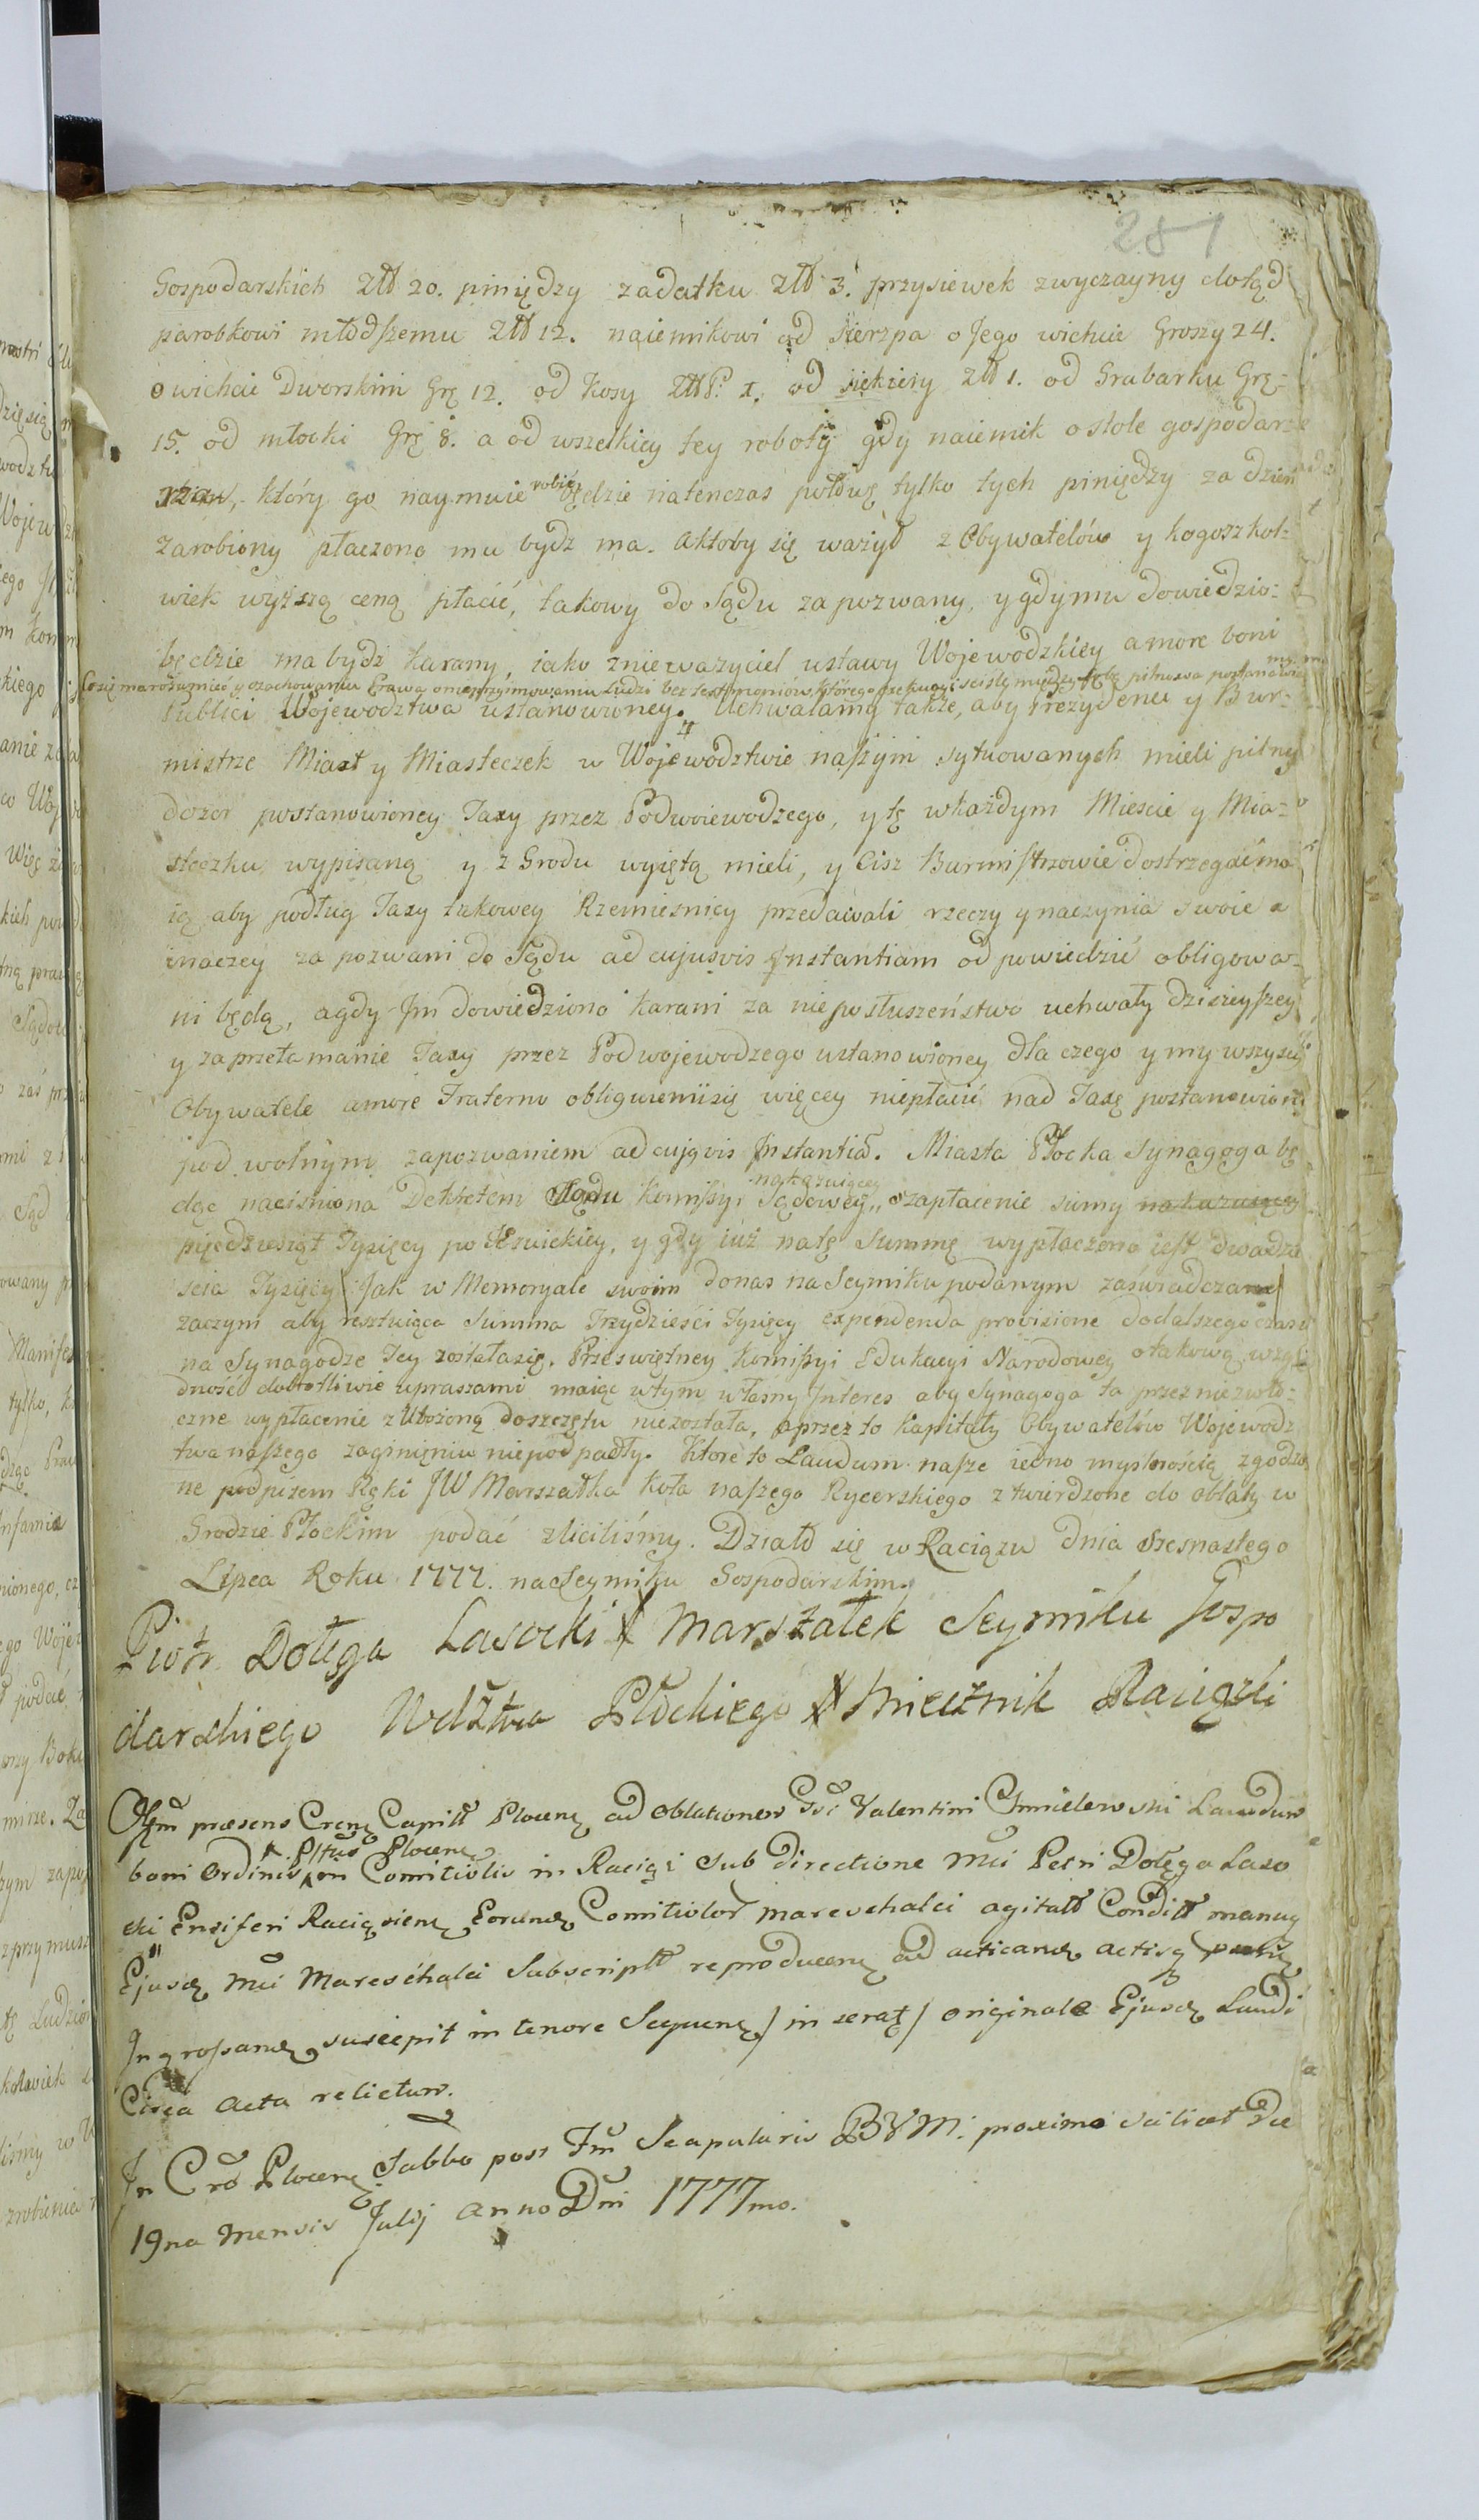 281
Gospodarskich Złł 20. piniędzy zadatku Złł 3. przysiewek zwyczayny dotąd
parobkowi młodszemu Złł 12. naiemnikowi od sierzpa o Jego wichcie Groszy 24.
o wichcie Dworskim Grę 12. od Kosy Złł P. 1. od siekiery Złł 1. od Grabarku Grę
15. od młocki Grę 8. a od wszelkiey tey roboty gdy naiemnik o stole gospodarza
który go naymuie robić będzie natenczas połowę tylko tych piniędzy za dzień
zarobiony płaczono mu bydz ma. Aktoby się ważył z Obywatelów y kogoszkol-
wiek wyższą ceną płacić, takowy do Sądu zapozwany, y gdy mu dowiedzio-
będzie ma bydź karany, iako znieważyciel ustawy Wojewodzkiey amore boni
Co się ma rozumieć y o zachowaniu Prawa o nieprzyimowaniu Ludzi bez testimoniów, którego exekucyi sciśle między sobą pilnować postanawia
Publici Wojewodztwa ustanowioney. Uchwalamy także, aby Prezydenci y Bur-
mistrze Miast y Miasteczek w Wojewodztwie naszym sytuowanych mieli pilny
dozor postanowioney Taxy przez Podwoiewodzego, y tę w każdym Mieście y Mia-
steczku wypisaną y z Grodu wyiętą mieli, y Cisz Burmistrzowie dostrzegać ma
ią aby podług Taxy takowey Rzemiesnicy przedawali rzeczy y naczynia swoie a
inaczey zapozwani do Sądu ad cujusvis Instantiam odpowiedzić obligowa-
ni będą, a gdy Im dowiedziono karani za nieposłuszeństwo uchwały dzisieyszey
y za przełamanie Taxy przez Podwojewodzego ustanowioney dla czego y my wszyscy
Obywatele amore Fraterno obliguiemy się więcey niepłacić nad Taxę postanowioną
pod wolnym zapozwaniem ad cujqvis Instantiã. Miasta Płocka Synagoga bę
dąc naciśniona Dekretem Sądu Komissyi Sądowey nakazuiącey o zapłacenie sumy nakazuiącey
pięćdziesiąt Tysięcy po Jezuickiey, y gdy iuż na tę Summę wypłaczono iest dwadzie
scia Tysięcy / Jak w Memoryale swoim do nas na Seymiku podanym zaświadczano /
zaczym aby resztuiąca Summa Trzydzieści Tysięcy expendenda provisione do dalszego czasu
na Synagodze Jey została się. Przeświętney Komissyi Edukacyi Narodowey o takową wzglę
dność dobrotliwie upraszami maiąc w tym własny Interes aby Synagoga ta przez niezwło-
czne wypłacenie zubożoną doszczętu niezostała, a przez to Kapitały Obywatelów Wojewodz
twa naszego zaginieniu niepodpadły. Które to Laudum nasze iedno myslnością zgodzo
ne podpisem Ręki JW Marszałka Koła naszego Rycerskiego ztwierdzone do oblaty w
Grodzie Płockim podać zliciliśmy. Działo się w Raciązu dnia Szesnastego
Lipca Roku 1777. na Seymiku Gospodarskim.
Piotr Dołęga Lasocki Marszałek Seymiku Gospo
darskiego Wdztwa Płockiego Miecznik Raciązki
Offm praesens Crens Capitł Plocens ad oblationem Gsi Valentini Chmielewski Laudum
boni Ordinis Plttus Plocens in Comitiolis in Raciąż sub directione Mci Petri Dołęga Laso
cki Ensiferi Raciąsiens Eorunde Comitiolor Mareschalci agitatł Conditł manuq
Ejusdę Mci Mareschalci Subscriptł reproducens ad acticande actisq
Ingrossande suscepit in tenore Sequens / in serat / originale Ejusde Laudi
Circa Acta relictum.
In Cro Plocens Sabbo post Fm Scapularis BVM. proximo scilicet Die
19na Mensis Julij Anno Dni 1777mo.